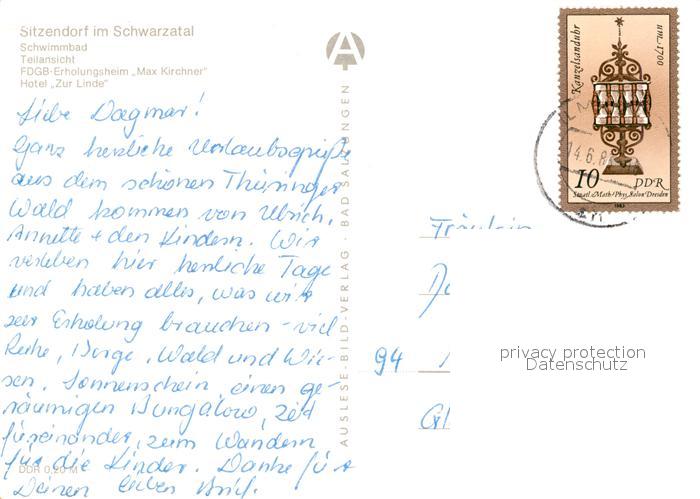 Sitzendorf im Schwarzatal
Schwimmbad
Teilansicht
FDGB-Erholungsheim „Max Kirchner“
Hotel „Zur Linde“
Liebe Dagmar!
Ganz herzliche Urlaubsgrüße
aus dem schönen Thüringer
Wald kommen von Ulrich,
Annette + den Kindern. Wir
verleben hier herrliche Tage
und haben alles, was wir
zur Erholung brauchen - viel
Ruhe, Berge, Wald und Wie-
sen, Sonnenschein, einen ge-
räumigen Bungalow, Zeit
füreinander, zum Wandern
für die Kinder. Danke für
Deinen lieben Brief.
DDR 0,20 M
AUSLESE-BILD-VERLAG · BAD SALZUNGEN
A
Kanzelsanduhr
um 1700
10 DDR
Staatl. Math.-Phys. Salon Dresden
1983
14.6.8
Fräulein
94
privacy protection
Datenschutz